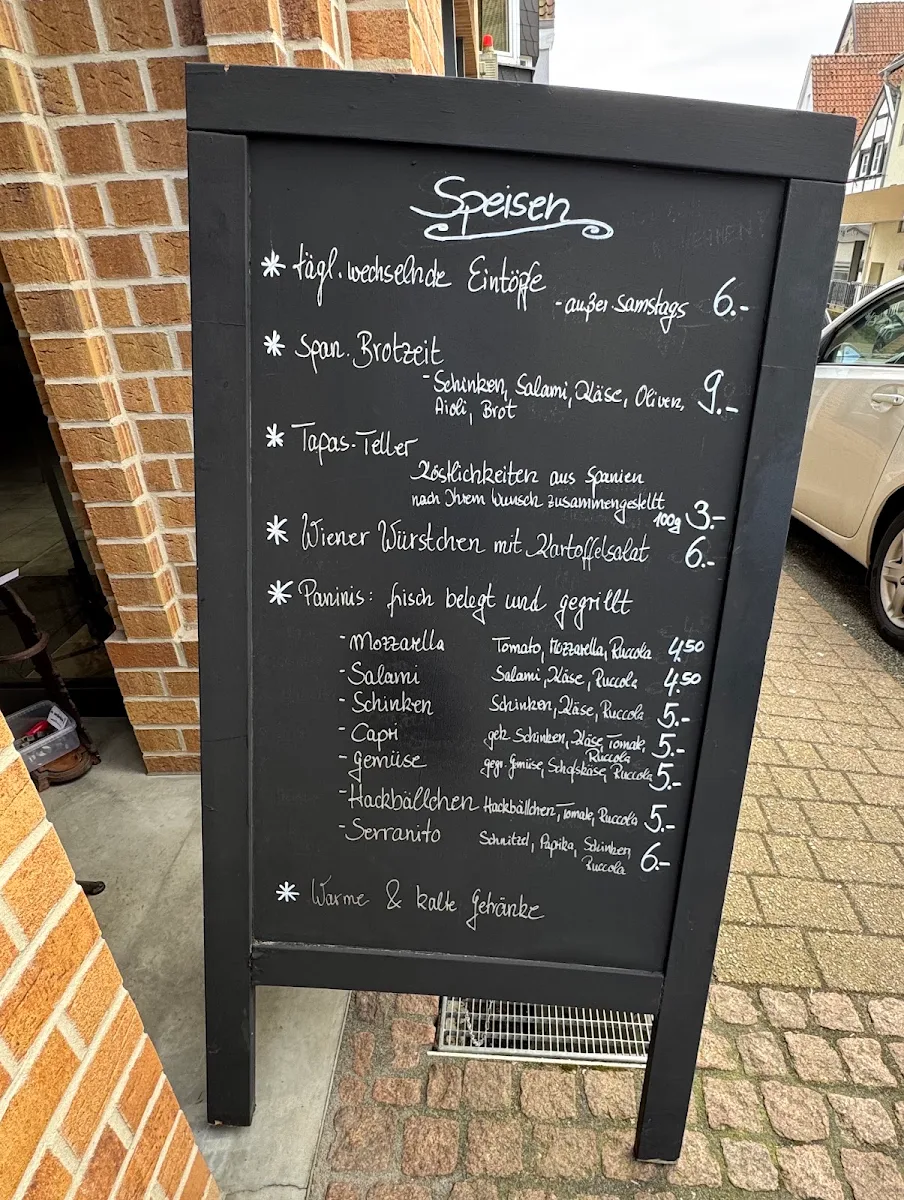 Speisen
* tägl. wechselnde Eintöpfe
- außer samstags 6.-
* Span. Brotzeit
- Schinken, Salami, Käse, Oliven, 9.-
Aioli, Brot
* Tapas-Teller
Köstlichkeiten aus Spanien
nach Ihrem Wunsch zusammengestellt
100g 3.-
* Wiener Würstchen mit Kartoffelsalat 6.-
* Paninis: frisch belegt und gegrillt
- Mozzarella Tomate, Mozzarella, Ruccola 4,50
- Salami Salami, Käse, Ruccola 4.50
- Schinken Schinken, Käse, Ruccola 5.-
- Capri gek. Schinken, Käse Tomate, 5.-
Ruccola
- Gemüse gegr. Gemüse, Schafskäse, Ruccola 5.-
- Hackbällchen Hackbällchen, Tomate, Ruccola 5.-
- Serranito Schnitzel, Paprika, Schinken, 6.-
Ruccola
* Warme & kalte Getränke